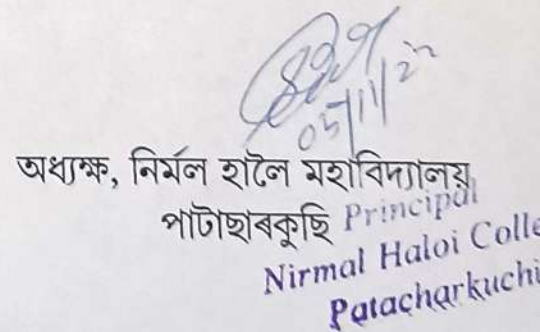 05/11/22
অধ্যক্ষ, নিৰ্মল হালৈ মহাবিদ্যালয়
পাটাছাৰকুছি
Principal
Nirmal Haloi Colle
Patacharkuchi